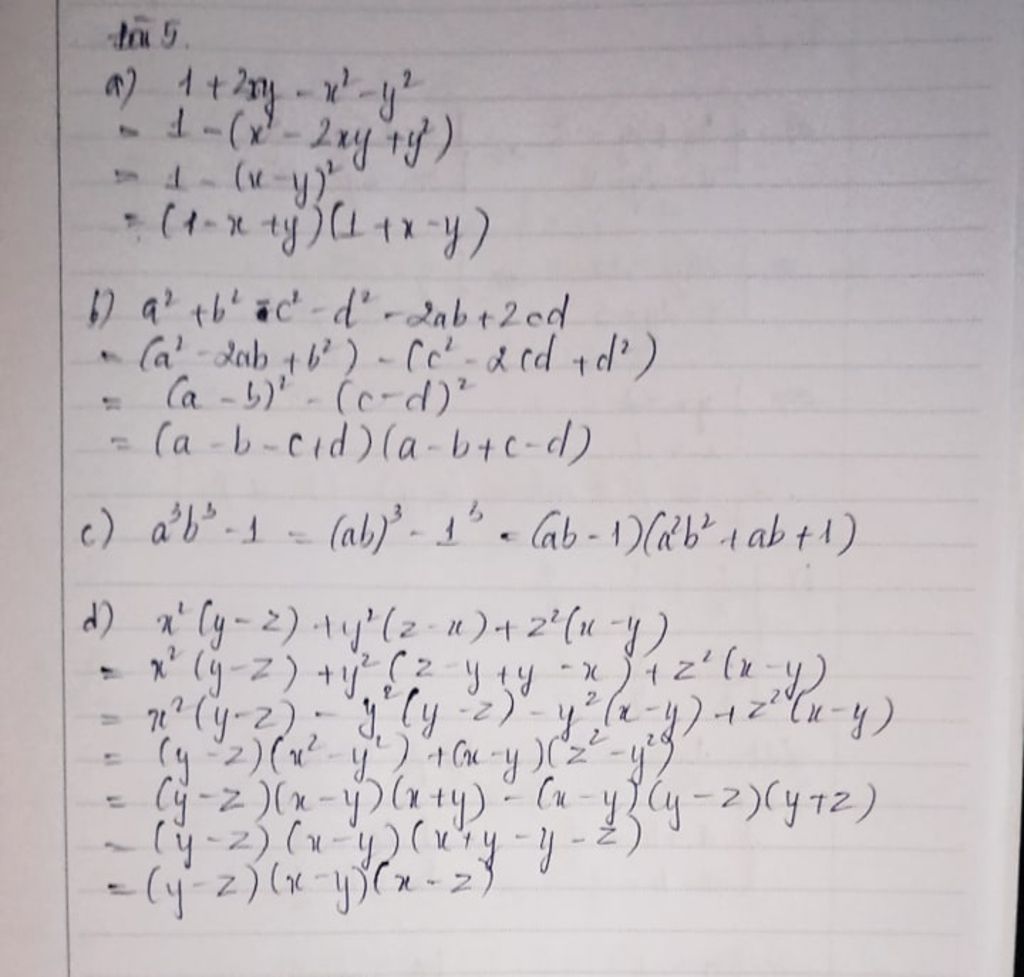 Bài 5.
a) 1 + 2xy - x² - y²
= 1 - (x² - 2xy + y²)
= 1 - (x - y)²
= (1 - x + y)(1 + x - y)
b) a² + b² - c² - d² - 2ab + 2cd
= (a² - 2ab + b²) - (c² - 2cd + d²)
= (a - b)² - (c - d)²
= (a - b - c + d)(a - b + c - d)
c) a³b³ - 1 = (ab)³ - 1³ = (ab - 1)(a²b² + ab + 1)
d) x²(y - z) + y²(z - x) + z²(x - y)
= x²(y - z) + y²(z - y + y - x) + z²(x - y)
= x²(y - z) - y²(y - z) - y²(x - y) + z²(x - y)
= (y - z)(x² - y²) + (x - y)(z² - y²)
= (y - z)(x - y)(x + y) - (x - y)(y - z)(y + z)
= (y - z)(x - y)(x + y - y - z)
= (y - z)(x - y)(x - z)